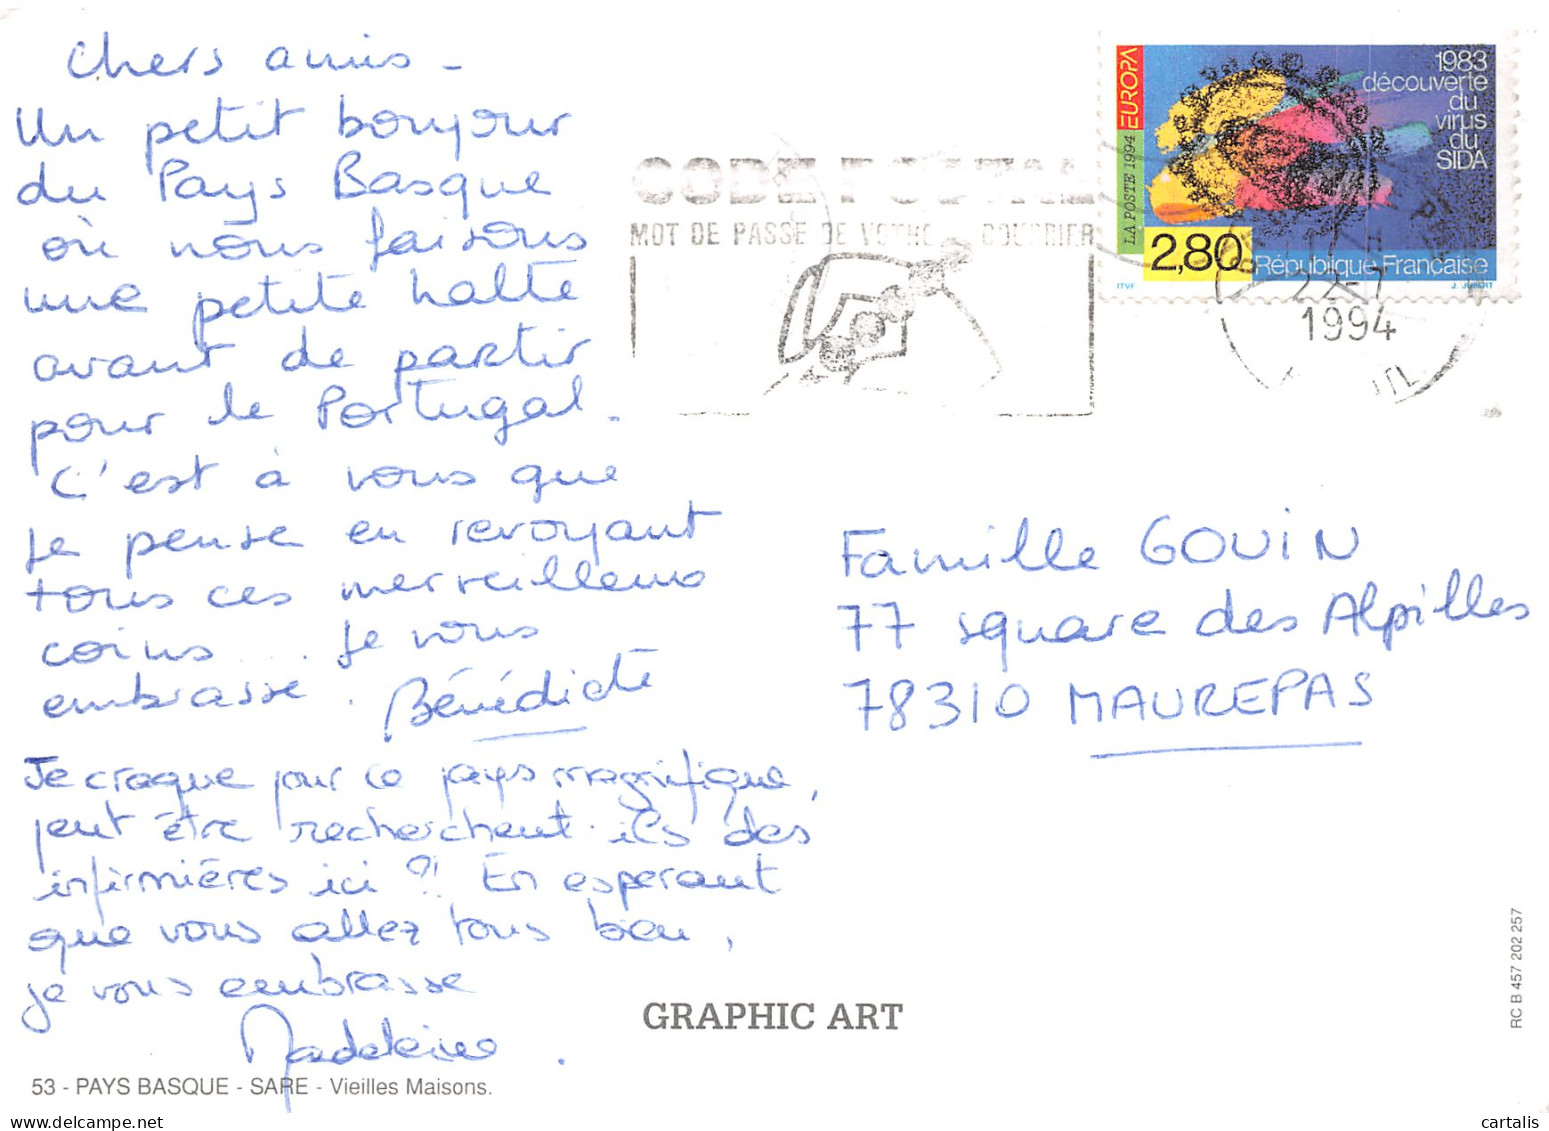 Chers amis -
Un petit bonjour
du Pays Basque
où nous faisons
une petite halte
avant de partir
pour le Portugal.
C'est à vous que
je pense en revoyant
tous ces merveilleux
coins... Je vous
embrasse. Bénédicte
Je craque pour ce pays magnifique,
peut être recherchent-ils des
infirmières ici ?! En esperant
que vous allez tous bien,
je vous embrasse
Madeleine.
53 - PAYS BASQUE - SARE - Vieilles Maisons.
CODE POSTAL
MOT DE PASSE DE VOTRE COURRIER
LA POSTE 1994 EUROPA
1983
découverte
du
virus
du
SIDA
2,80 République Française
ITVF J. JUNOIT
22-7
1994
Famille GOUIN
77 square des Alpilles
78310 MAUREPAS
GRAPHIC ART
RC B 457 202 257
cartalis